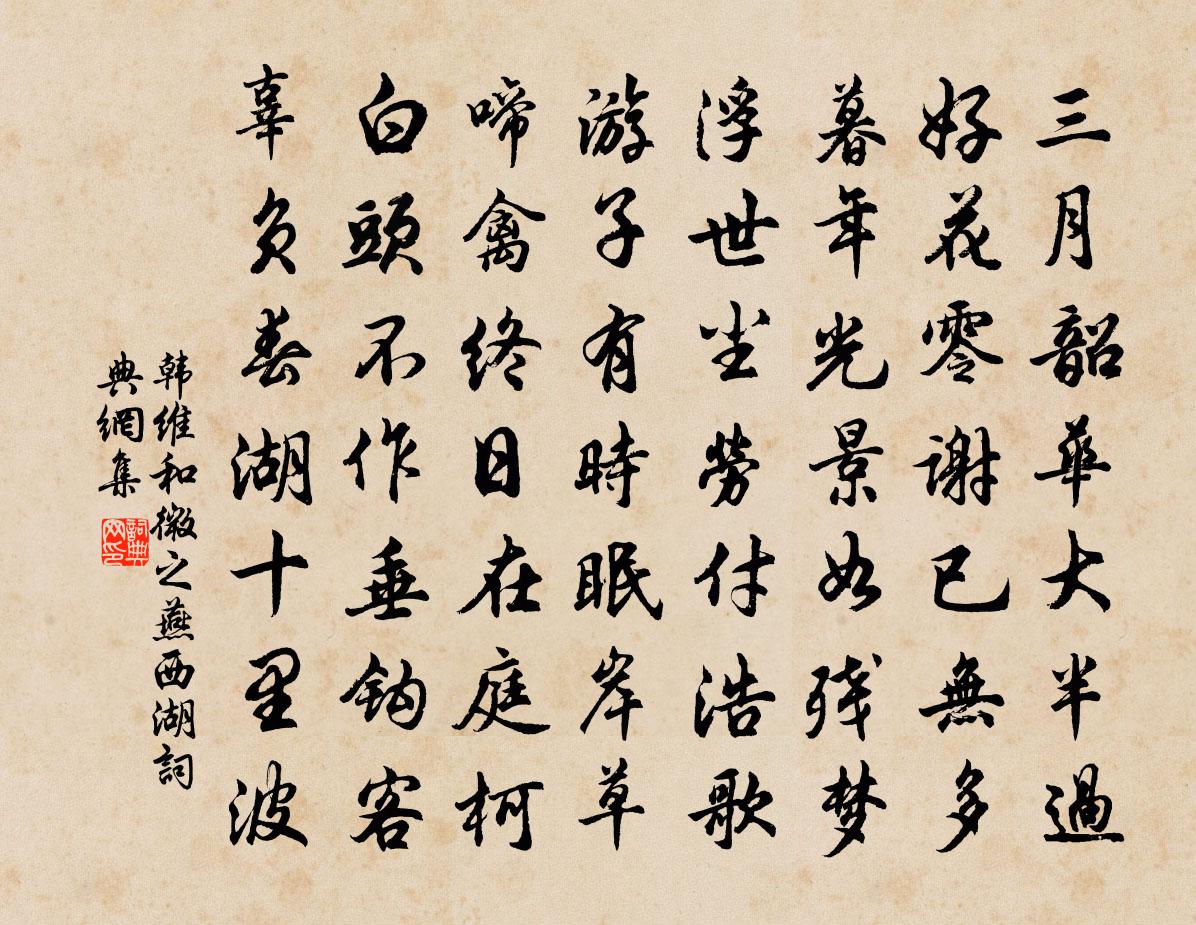 三月韶華大半過
好花零謝已無多
暮年光景如残梦
浮世尘勞付浩歌
游子有時眠岸草
啼禽終日在庭柯
白頭不作垂鈎客
辜負春湖十里波
韩维和微之燕西湖詞
典網集
詞典网印